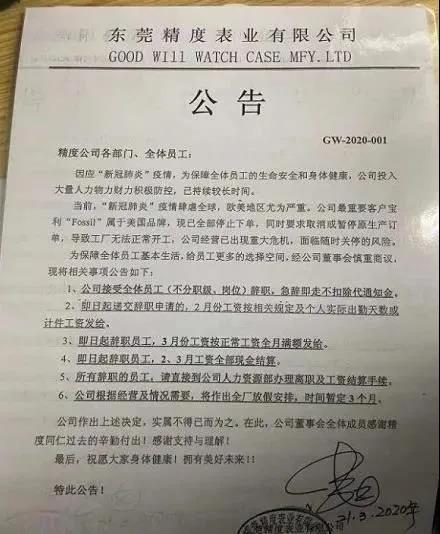 东莞精度表业有限公司
GOOD Will WATCH CASE MFY.LTD
公 告
GW-2020-001
精度公司各部门、全体员工：
因应“新冠肺炎”疫情，为保障全体员工的生命安全和身体健康，公司投入
大量人力物力财力积极防控，已持续较长时间。
当前，“新冠肺炎”疫情肆虐全球，欧美地区尤为严重。公司最重要客户宝
利“Fossil”属于美国品牌，现已全部停止下单，同时要求取消或暂停原生产订
单，导致工厂无法正常开工，公司经营已出现重大危机，面临随时关停的风险。
为保障全体员工基本生活，给员工更多的选择空间，经公司董事会慎重商议，
现将相关事项公告如下：
1、公司接受全体员工（不分职级、岗位）辞职，急辞即走不扣除代通知金。
2、即日起递交辞职申请的，2月份工资按相关规定及个人实际出勤天数或
计件工资发给。
3、即日起辞职员工，3月份工资按正常工资全月满额发给。
4、即日起辞职员工，2、3月工资全部现金结算。
5、所有辞职的员工，请直接到公司人力资源部办理离职及工资结算手续。
6、公司根据经营及情况需要，将作出全厂放假安排，时间暂定3个月。
公司作出上述决定，实属不得已而为之。在此，公司董事会全体成员感谢精
度同仁过去的辛勤付出！感谢支持与理解！
最后，祝愿大家身体健康！拥有美好未来！！
特此公告！
31.3.2020年
精度表业有限公司